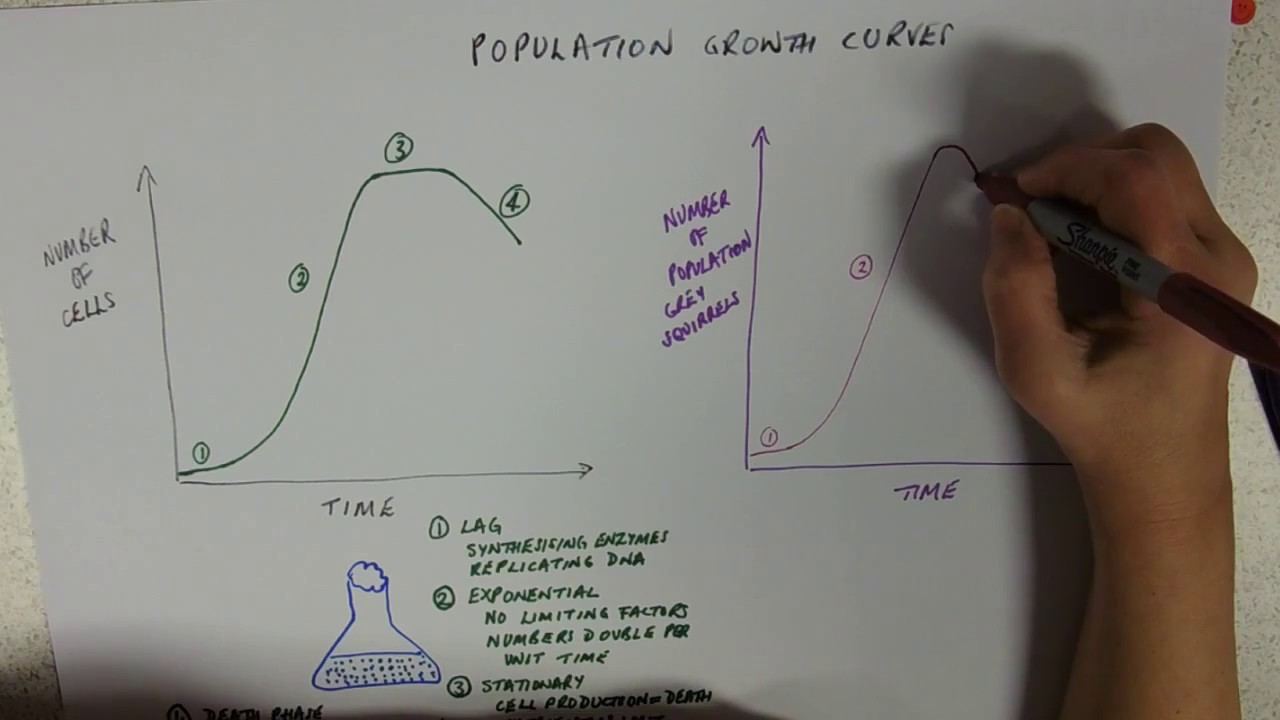 POPULATION GROWTH CURVES
③
④
NUMBER
OF
CELLS
②
①
TIME
NUMBER
OF
POPULATION
GREY
SQUIRRELS
②
①
TIME
Sharpie
① LAG
SYNTHESISING ENZYMES
REPLICATING DNA
② EXPONENTIAL
NO LIMITING FACTORS
NUMBERS DOUBLE PER
UNIT TIME
③ STATIONARY
CELL PRODUCTION = DEATH
④ DEATH PHASE